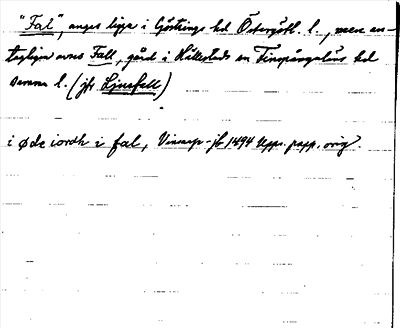 "Fal", anges ligga i Göstrings hd Östergötl. l., men an-
tagligen avses Fall, gård i Hällestads sn Finspångaläns hd
samma l. (jfr Ljusfall)
i øde iordh i fal, Vinsarp-jb 1494 Upps. papp. orig.